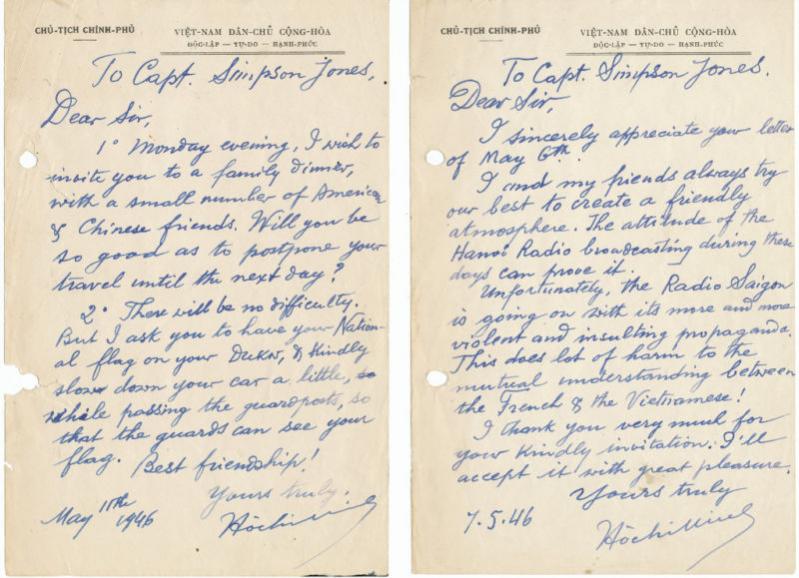 CHỦ-TỊCH CHÍNH-PHỦ
VIỆT-NAM DÂN-CHỦ CỘNG-HÒA
ĐỘC-LẬP — TỰ-DO — HẠNH-PHÚC
To Capt. Simpson Jones,
Dear Sir,
1° Monday evening, I wish to
invite you to a family dinner,
with a small number of American
& Chinese friends. Will you be
so good as to postpone your
travel until the next day?
2° There will be no difficulty.
But I ask you to have your Nation-
al flag on your & kindly
slow down your car a little,
while passing the guardposts, so
that the guards can see your
flag. Best friendship!
Yours truly,
May 11th 1946
Hồchíminh
CHỦ-TỊCH CHÍNH-PHỦ
VIỆT-NAM DÂN-CHỦ CỘNG-HÒA
ĐỘC-LẬP — TỰ-DO — HẠNH-PHÚC
To Capt. Simpson Jones.
Dear Sir,
I sincerely appreciate your letter
of May 6th.
I and my friends always try
our best to create a friendly
atmosphere. The attitude of the
Hanoi Radio broadcasting during these
days can prove it.
Unfortunately, the Radio Saigon
is going on with its more and more
violent and insulting propaganda.
This does lot of harm to the
mutual understanding between
the French & the Vietnamese!
I thank you very much for
your kindly invitation. I'll
accept it with great pleasure.
Yours truly
7.5.46
Hồchíminh